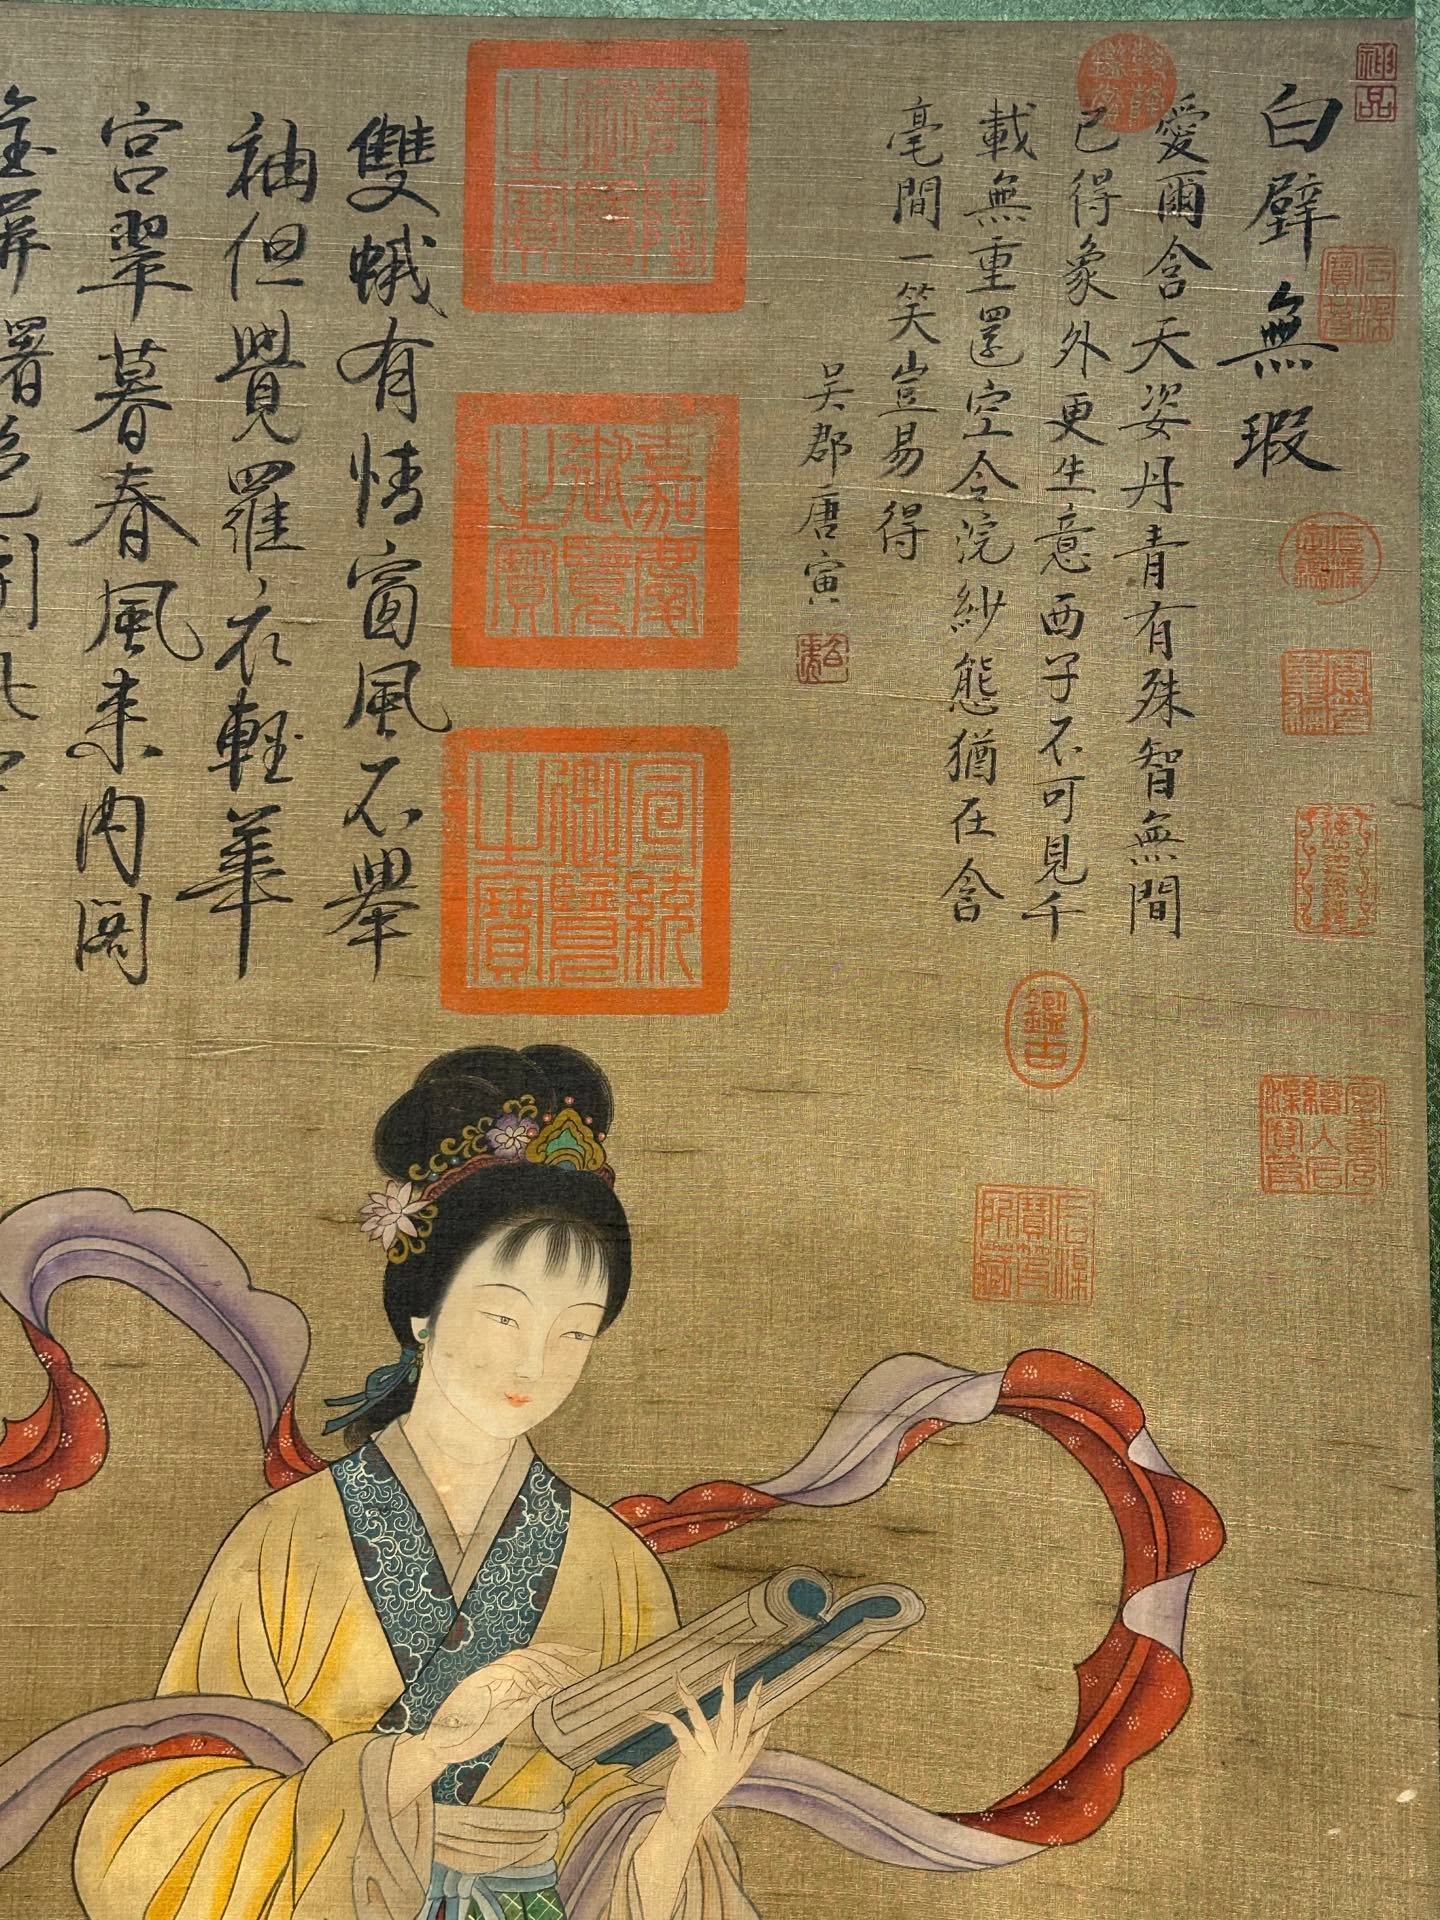 白璧無瑕
愛爾含天姿丹青有殊智無間
已得象外更生意西子不可見千
載無重還空令浣紗態猶在含
毫間一笑豈易得
吳郡唐寅
乾隆御覽之寶
嘉慶御覽之寶
宣統御覽之寶
雙蛾有情窗風不舉
袖但覺羅衣輕華
宮翠暮春風来內閣
神品
鑑古
石渠寶笈
石渠寶笈所藏